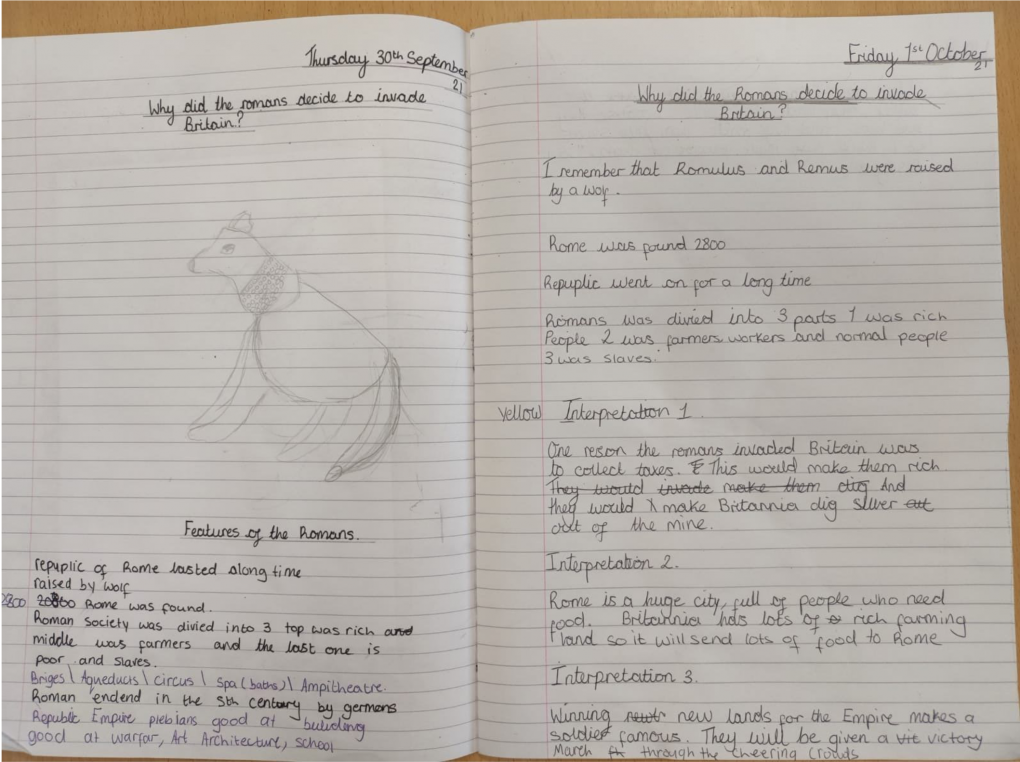 Thursday 30th September
21
Why did the romans decide to invade
Britain?
Features of the Romans.
repuplic of Rome lasted along time
raised by wolf
2800 20800 Rome was found.
Roman society was divied into 3 top was rich and
middle was farmers and the last one is
poor and slaves.
Briges \ Aqueducts \ circus \ spa (baths) \ Ampitheatre.
Roman endend in the 5th century by germens
Republic Empire plebians good at buliding
good at warfar, Art Architecture, school
Friday 1st October
21
Why did the Romans decide to invade
Britain?
I remember that Romulus and Remus were raised
by a wolf.
Rome was found 2800
Repuplic went on for a long time
Romans was divied into 3 parts 1 was rich
People 2 was farmers workers and normal people
3 was slaves.
Yellow Interpretation 1.
One reson the romans invaded Britain was
to collect taxes. This would make them rich.
They would invade make them dig And
they would make Britannia dig silver
out of the mine.
Interpretation 2.
Rome is a huge city, full of people who need
food. Britannia has lots of rich farming
land so it will send lots of food to Rome
Interpretation 3.
Winning new lands for the Empire makes a
soldier famous. They will be given a victory
March through the cheering crouds